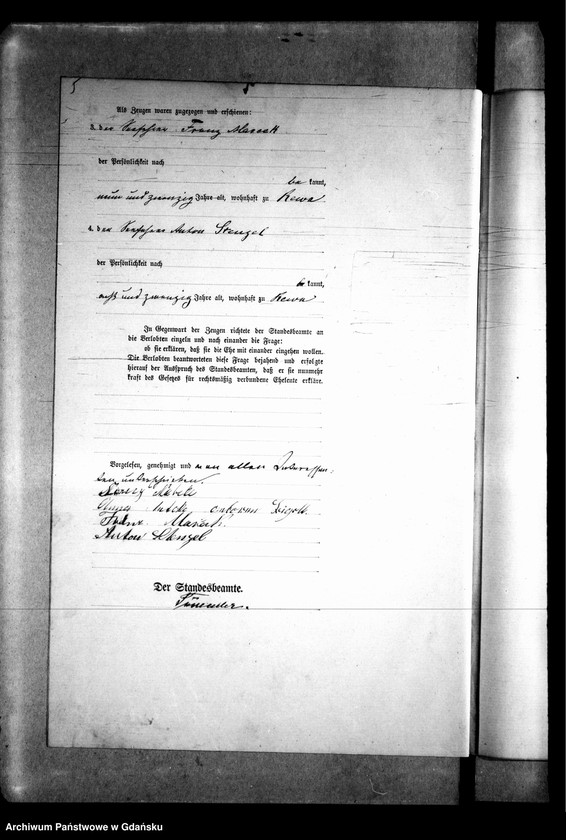 Als Zeugen waren zugezogen und erschienen:
3. der Seefahrer Franz
der Persönlichkeit nach
be kannt,
neun und zwanzig Jahre alt, wohnhaft zu Rewa
4. der Seefahrer Anton Stenzel
der Persönlichkeit nach
be kannt,
acht und zwanzig Jahre alt, wohnhaft zu Rewa
In Gegenwart der Zeugen richtete der Standesbeamte an
die Verlobten einzeln und nach einander die Frage:
ob sie erklären, daß sie die Ehe mit einander eingehen wollen.
Die Verlobten beantworteten diese Frage bejahend und erfolgte
hierauf der Ausspruch des Standesbeamten, daß er sie nunmehr
kraft des Gesetzes für rechtmäßig verbundene Eheleute erkläre.
Vorgelesen, genehmigt und von allen Interessen-
ten unterschrieben.
Franz
Anton Stenzel
Der Standesbeamte.
Archiwum Państwowe w Gdańsku